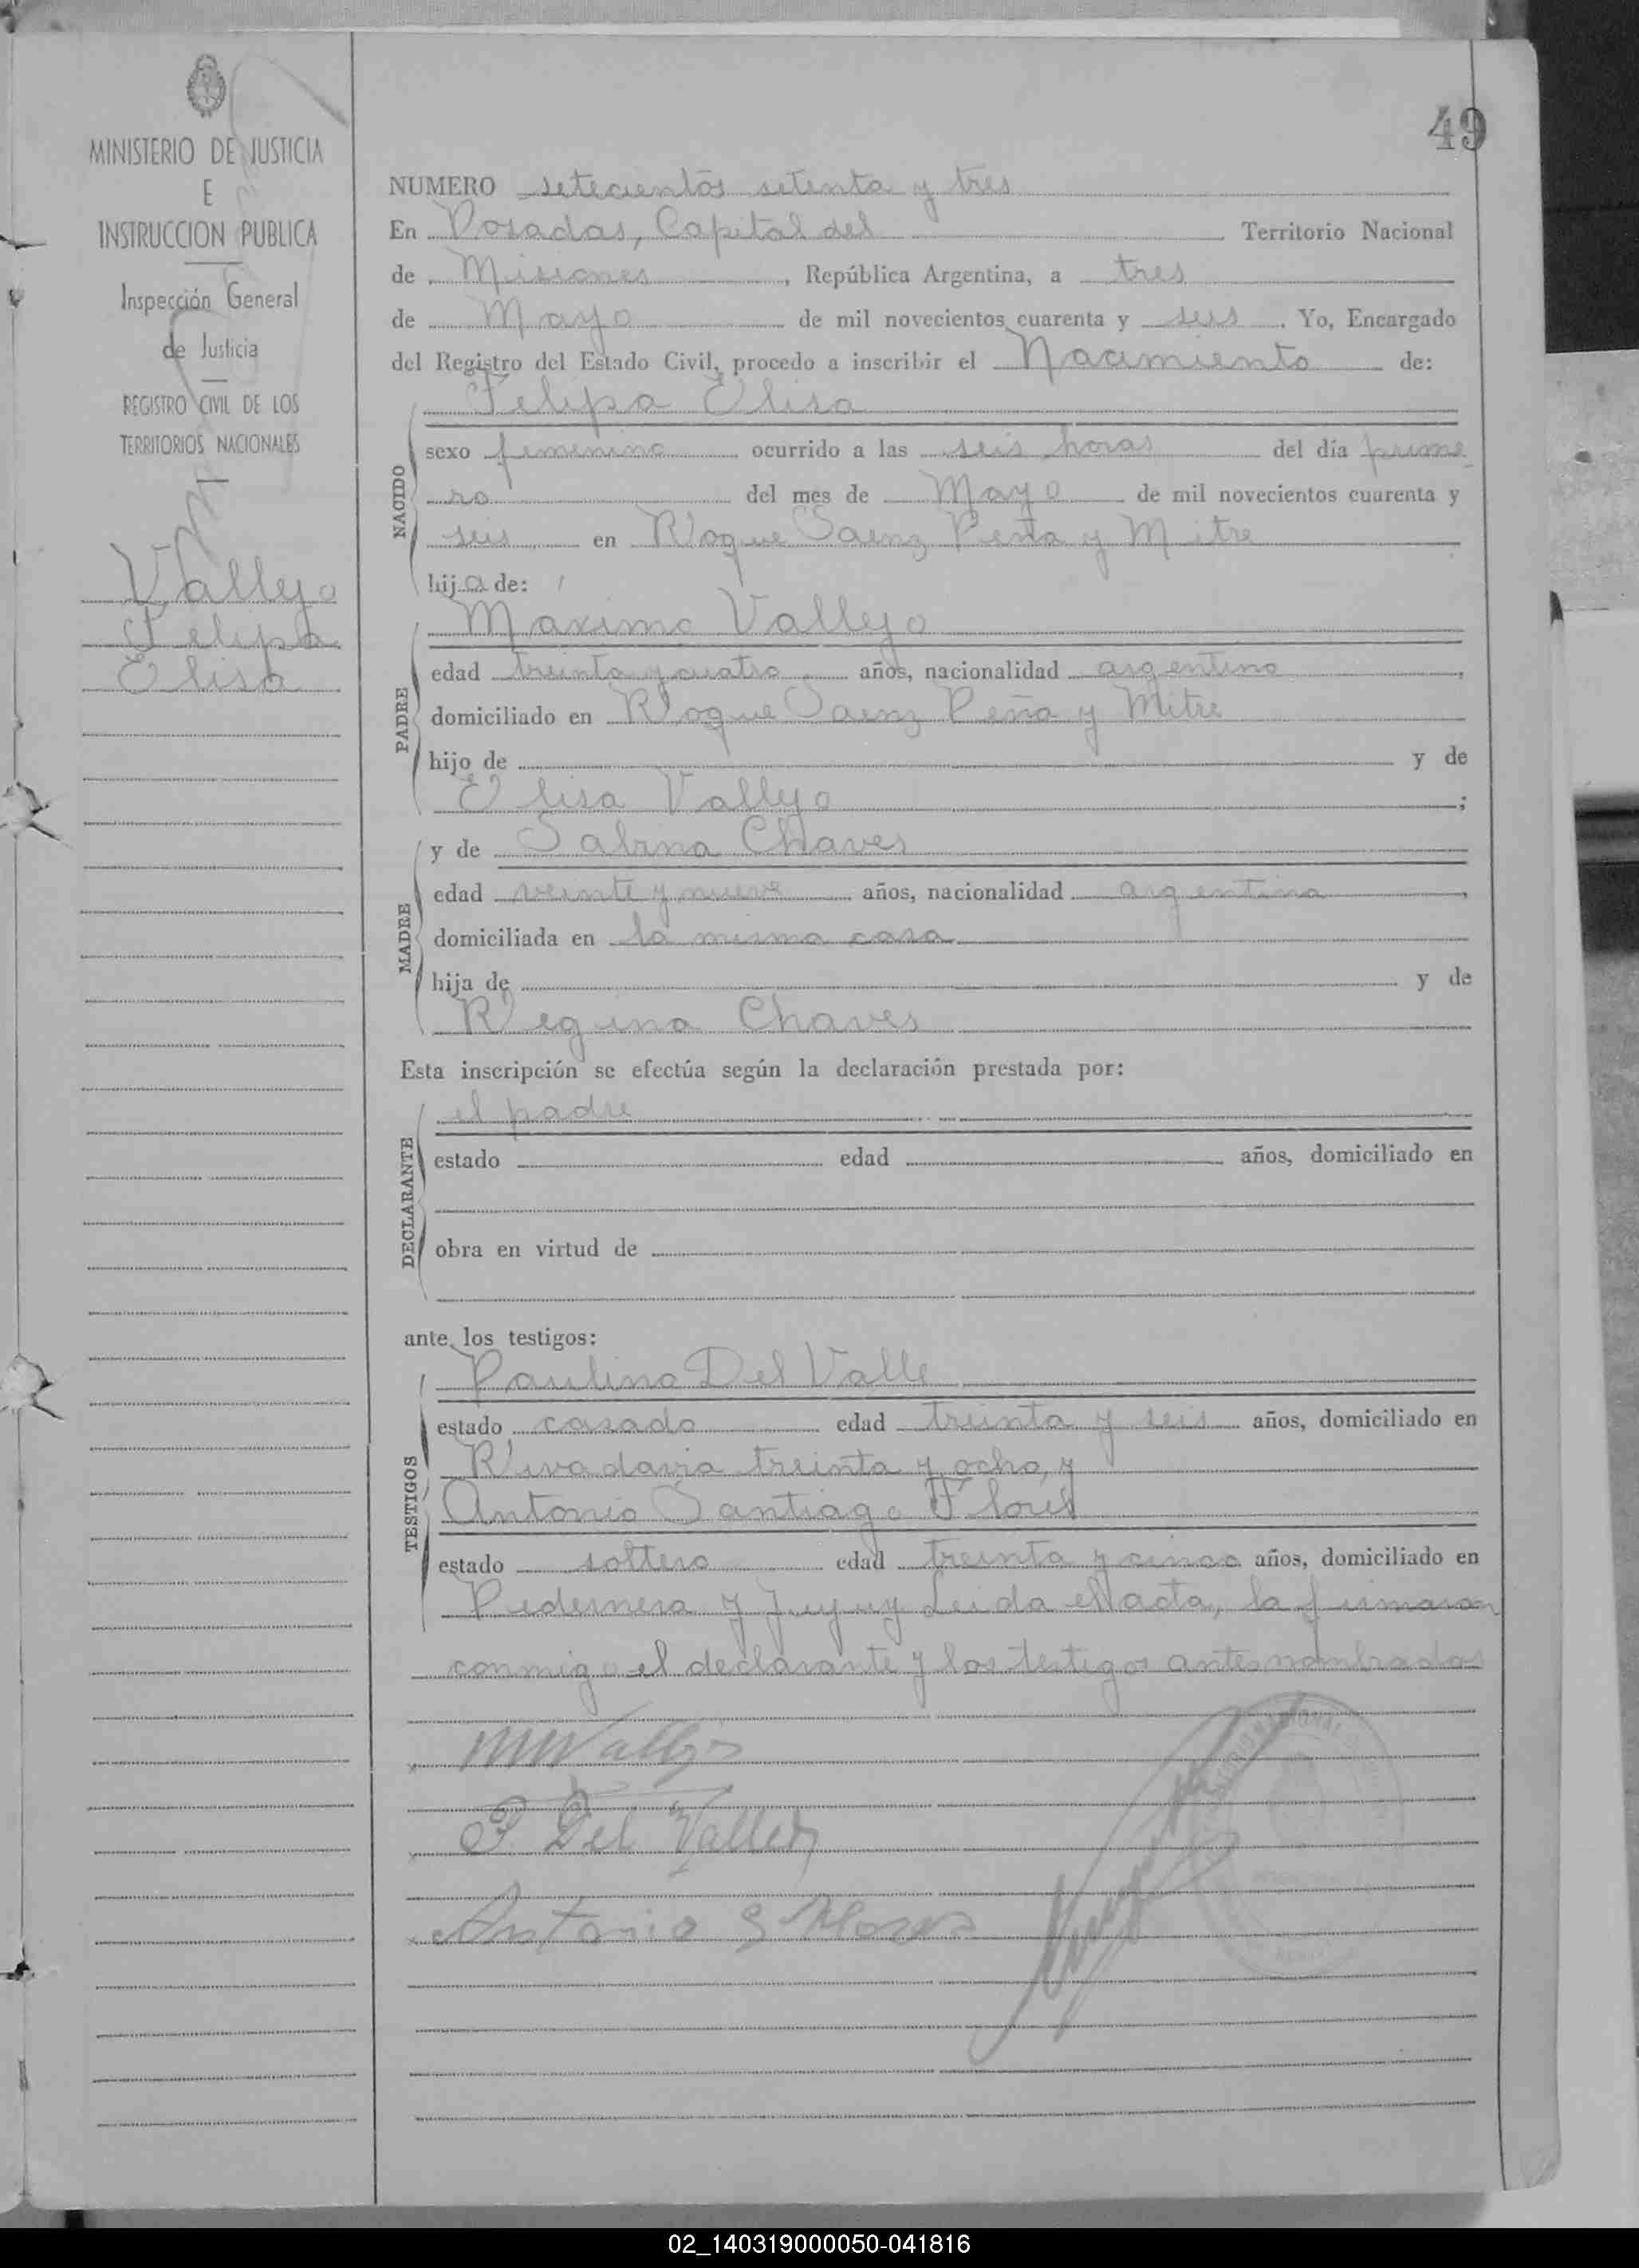 49
MINISTERIO DE JUSTICIA
E
INSTRUCCION PUBLICA
Inspección General
de Justicia
REGISTRO CIVIL DE LOS
TERRITORIOS NACIONALES
Vallejo
Felipa
Elisa
NUMERO setecientos setenta y tres
En Posadas, Capital del Territorio Nacional
de Misiones, República Argentina, a tres
de Mayo de mil novecientos cuarenta y seis. Yo, Encargado
del Registro del Estado Civil, procedo a inscribir el Nacimiento de:
NACIDO
Felipa Elisa
sexo femenino ocurrido a las seis horas del día prime
ro del mes de Mayo de mil novecientos cuarenta y
seis en Roque Saenz Peña y Mitre
hija de:
PADRE
Maximo Vallejo
edad treinta y cuatro años, nacionalidad argentino,
domiciliado en Roque Saenz Peña y Mitre
hijo de y de
Elisa Vallejo;
MADRE
y de Sabina Chaves
edad veinte y nueve años, nacionalidad argentina,
domiciliada en la misma casa
hija de y de
Regina Chaves
Esta inscripción se efectúa según la declaración prestada por:
DECLARANTE
el padre
estado edad años, domiciliado en
obra en virtud de
ante los testigos:
TESTIGOS
Paulino Del Valle
estado casado edad treinta y seis años, domiciliado en
Rivadavia treinta y ocho, y
Antonio Santiago Flores
estado soltero edad treinta y cinco años, domiciliado en
Pedernera y Jujuy Leida el acta, la firmaron
conmigo el declarante y los testigos antes nombrados
MVallejo
P. Del Valle
Antonio S Flores
02_140319000050-041816